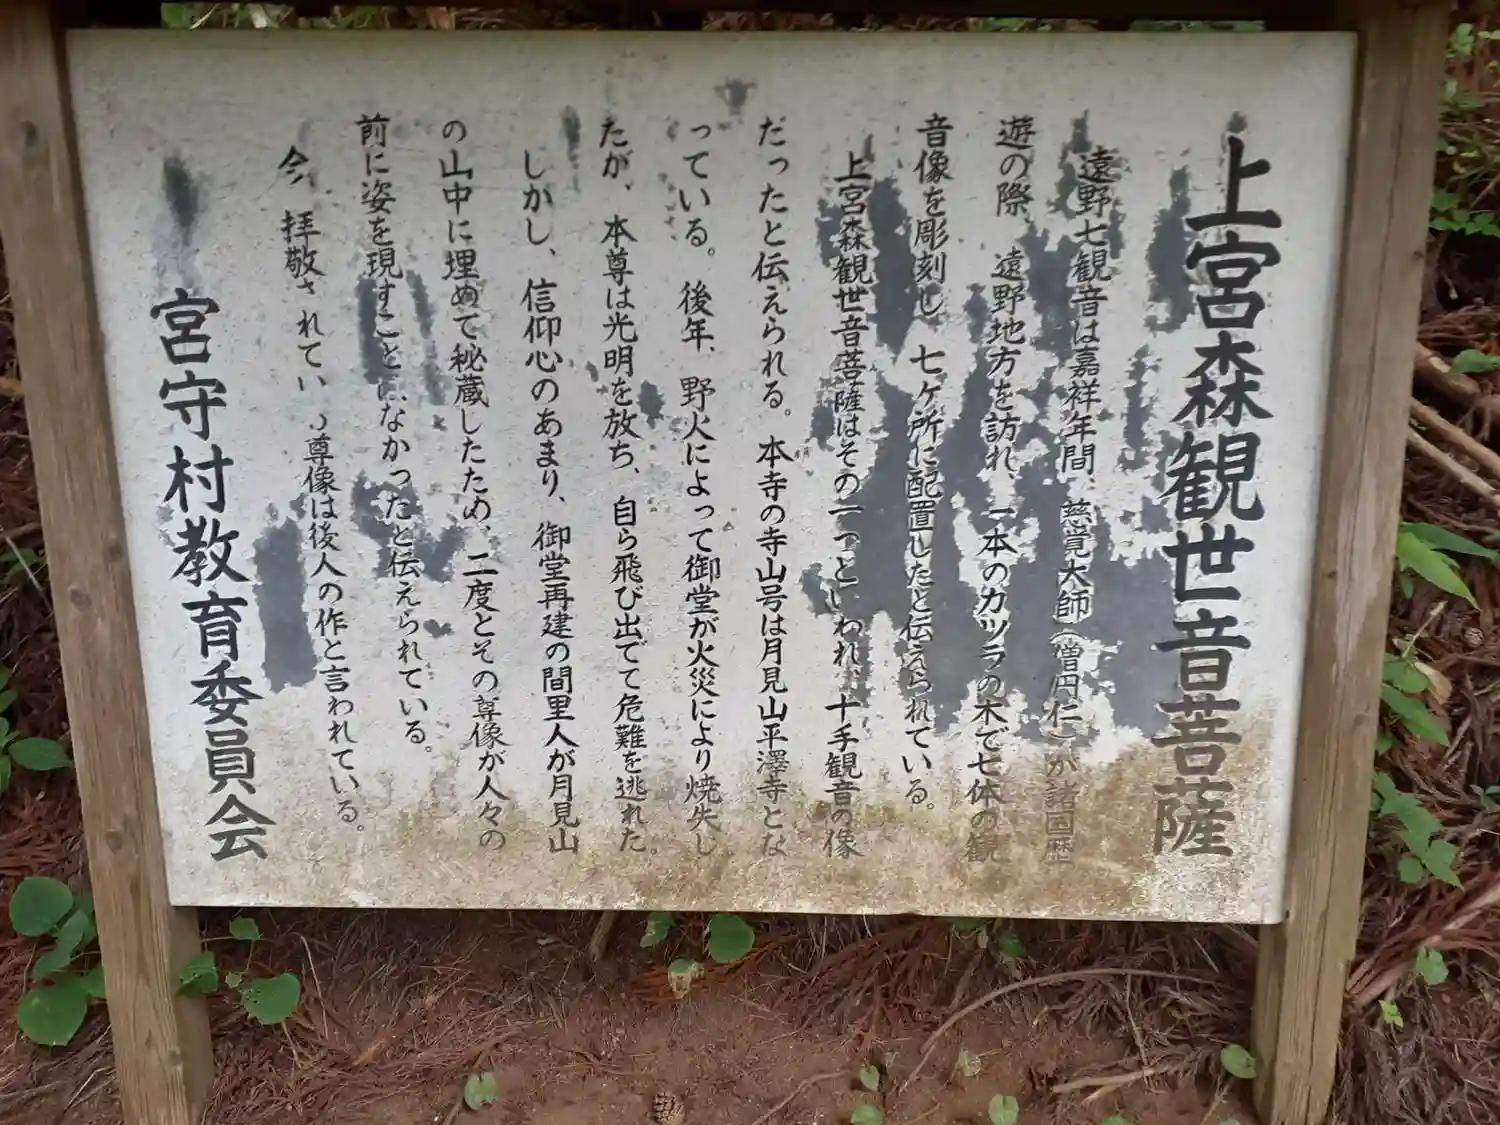 上宮森観世音菩薩
遠野七観音は嘉祥年間、慈覚大師(僧円仁)が諸国歴
遊の際、遠野地方を訪れ、一本のカツラの木で七体の観
音像を彫刻し、七ヶ所に配置したと伝えられている。
上宮森観世音菩薩はその一つといわれ、十手観音の像
だったと伝えられる。本寺の寺山号は月見山平澤寺とな
っている。後年、野火によって御堂が火災により焼失し
たが、本尊は光明を放ち、自ら飛び出でて危難を逃れた。
しかし、信仰心のあまり、御堂再建の間里人が月見山
の山中に埋めて秘蔵したため、二度とその尊像が人々の
前に姿を現すことはなかったと伝えられている。
今、拝敬されている尊像は後人の作と言われている。
宮守村教育委員会